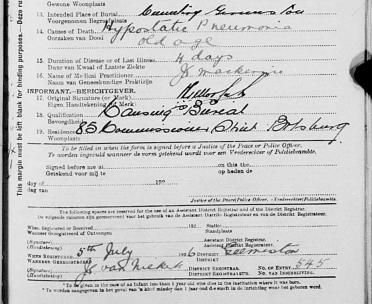 Gewone Woonplaats
13. Intended Place of Burial
Voorgenomen Begraafplaats
14. Causes of Death Hypostatic Pneumonia
Oorzaken van Dood Old age
15. Duration of Disease or of Last Illness. 4 days
Duur van Kwaal of Laatste Ziekte
16. Name of Medical Practitioner
Naam van Geneeskundige Praktizijn
INFORMANT.—BERICHTGEVER.
17. Original Signature (or Mark)
Eigen Handtekening (of Merk)
18. Qualification Causing Burial
Bevoegdheid
19. Residence 85 Commissioner Street Boksburg
Woonplaats
To be filled in when the form is signed before a Justice of the Peace or Police Officer.
Te worden ingevuld wanneer de vorm getekend wordt voor een Vrederechter of Politiebeambte.
Signed before me at on this the
Getekend voor mij te op heden de
day of 192
dag van
Justice of the Peace/Police Officer.—Vrederechter/Politiebeambte.
The following spaces are reserved for the use of an Assistant District Registrar and of the District Registrar.
De volgende ruimten zijn gereserveerd voor het gebruik van de Assistent Distrikt Registrateur en van de Distrikt Registrateur.
When Registered or Received 192 Station
Wanneer Geregistreerd of Ontvangen Standplaats
(Signature) Assistant District Registrar.
(Handtekening) Assistent Distrikt Registrateur.
WHEN REGISTERED 5th July 1926 DISTRICT Germiston
WANNEER GEREGISTREERD DISTRIKT
(Signature) van Niekerk DISTRICT REGISTRAR. No. OF ENTRY 545
(Handtekening) DISTRIKT REGISTRATEUR. No. VAN INSCHRIJVING.
*To be given in the case of an infant less than 1 year old who dies in the institution where it was born.
This margin must be left blank for binding purposes.—Deze